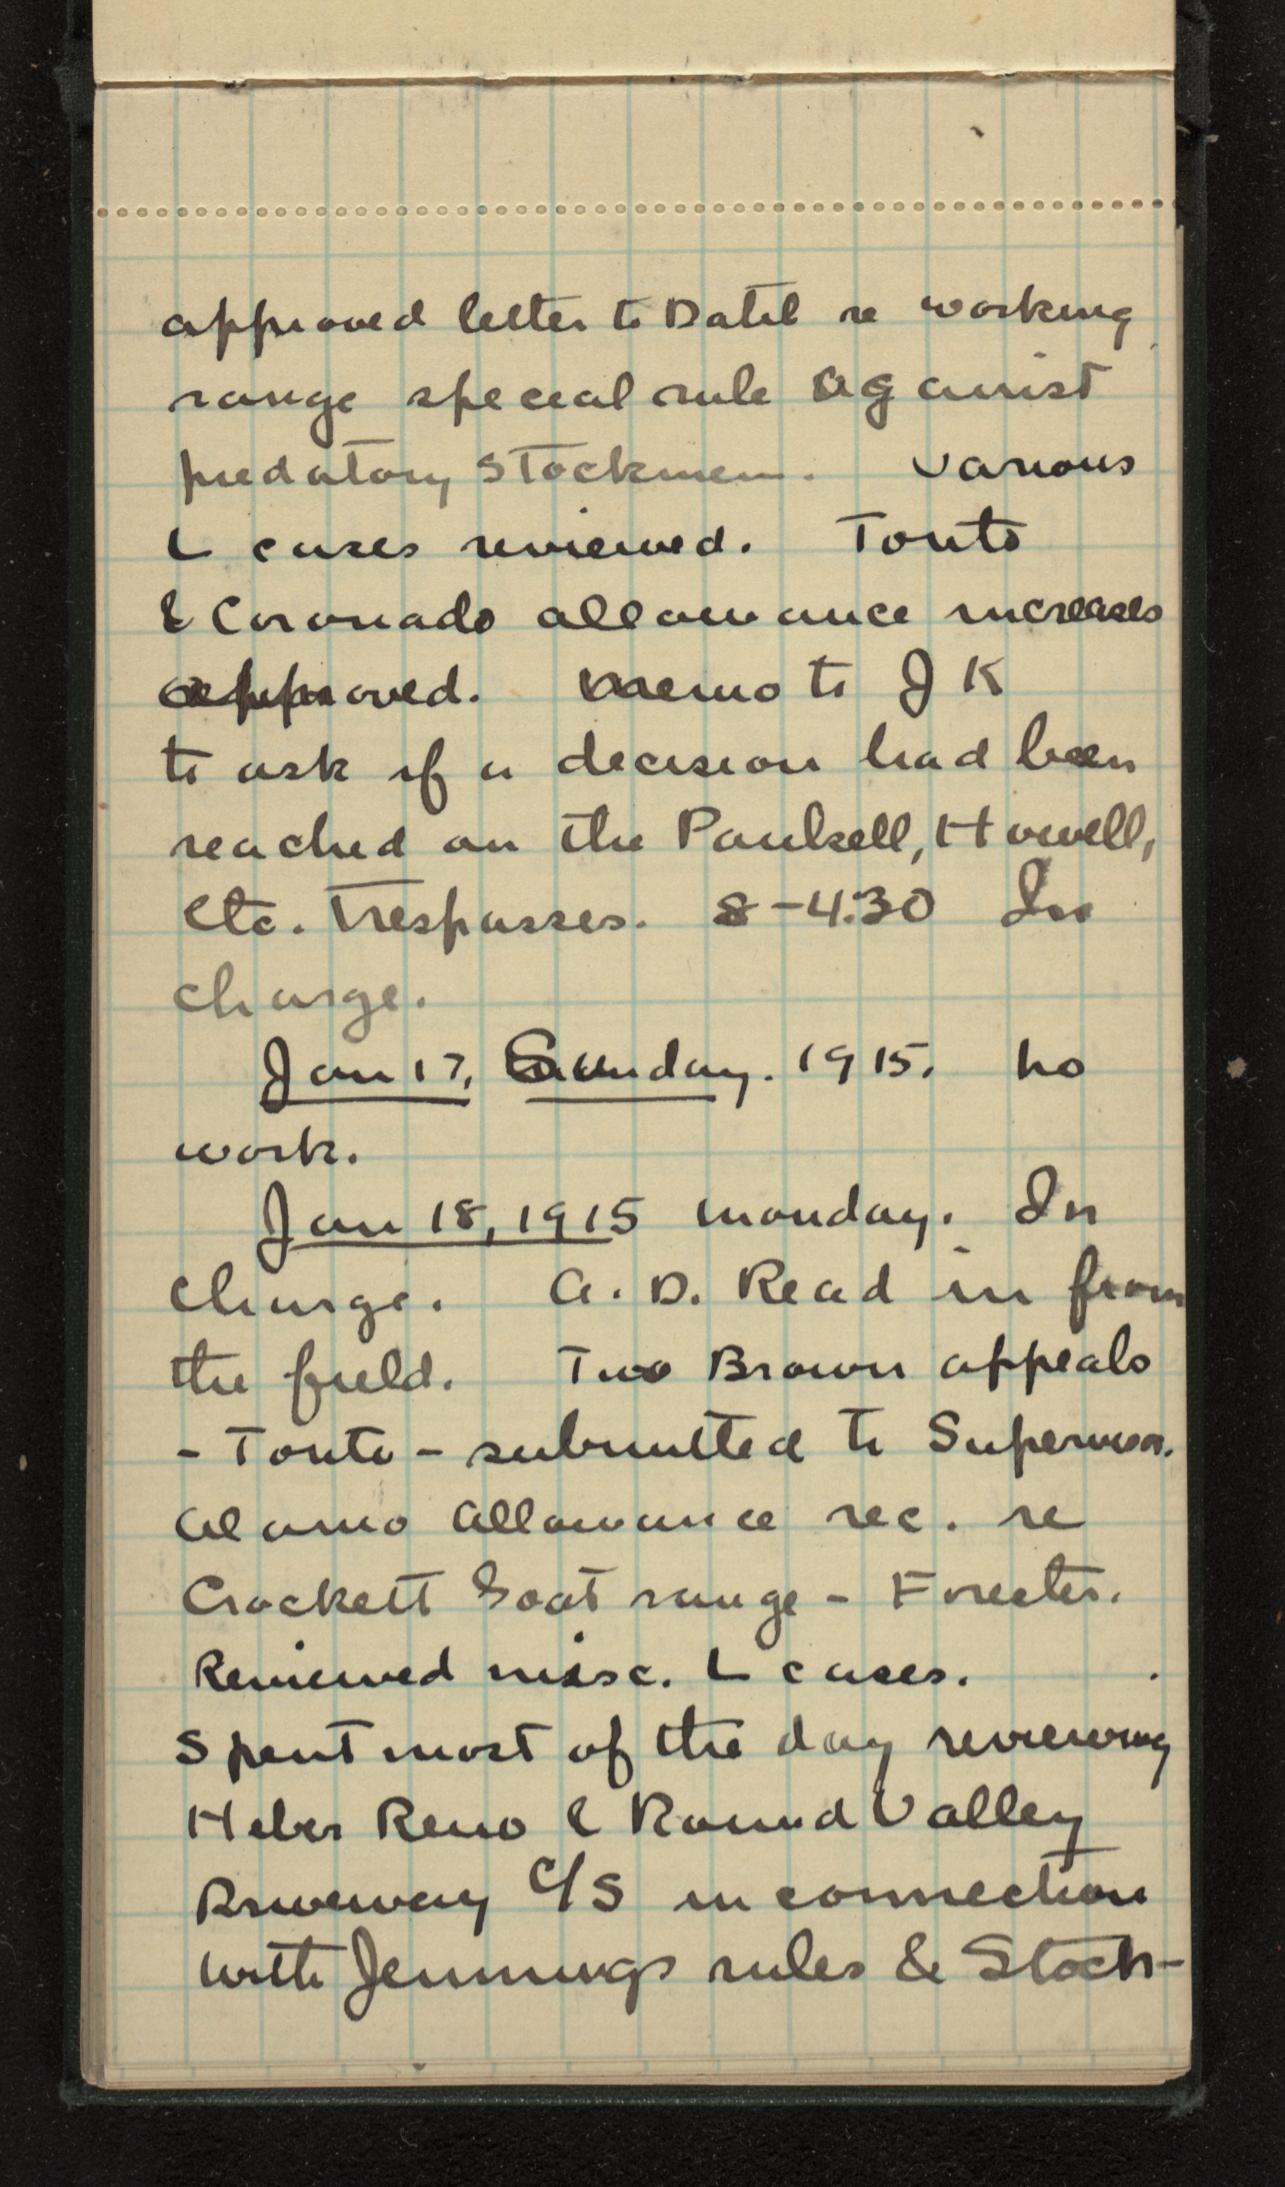 approved letter to Datil re working
range special rule against
predatory stockmen. Various
L cases reviewed. Tonto
& Coronado allowance increases
approved. Memo to J K
to ask if a decision had been
reached on the Pankell, Howell,
etc. Trespasses. 8-4:30 In
charge.
Jan 17, Sunday. 1915. No
work.
Jan 18, 1915 Monday. In
charge. A. D. Read in from
the field. Two Brown appeals
- Tonto - submitted to Supervisor.
Alamo allowance rec. re
Crockett Goat range - Forester.
Reviewed misc. L cases.
Spent most of the day reviewing
Heber Reno & Round Valley
Driveway C/S in connection
with Jennings rules & Stock-